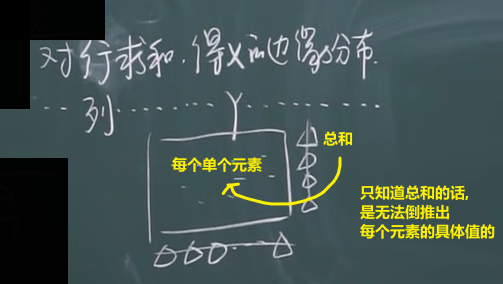 对行求和.得X的边缘分布.
…列…………Y…………
总和
每个单个元素
只知道总和的话,
是无法倒推出
每个元素的具体值的